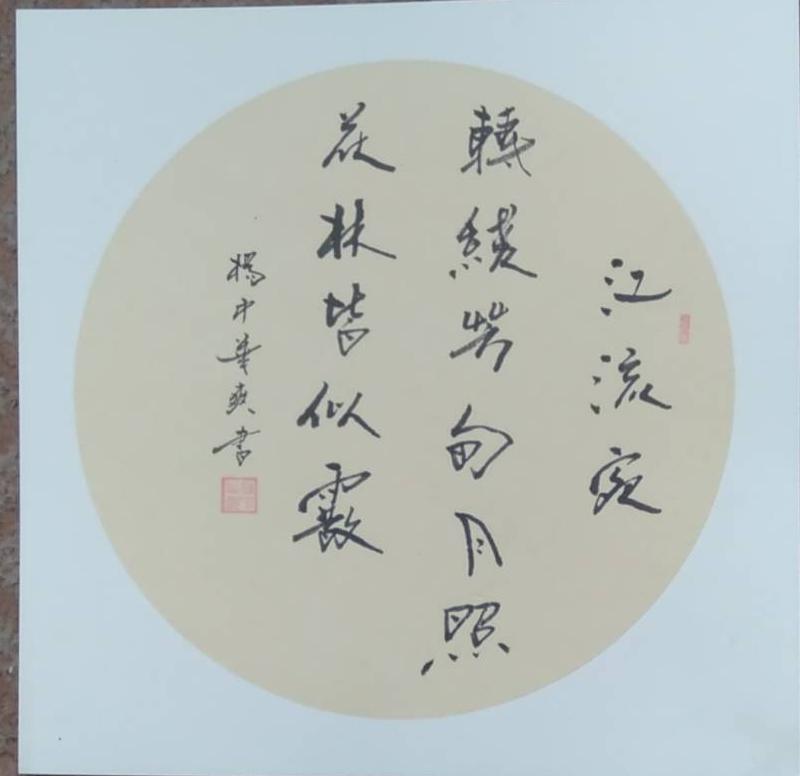 江流宛
轉繞芳甸月照
花林皆似霰
楊中華爽書